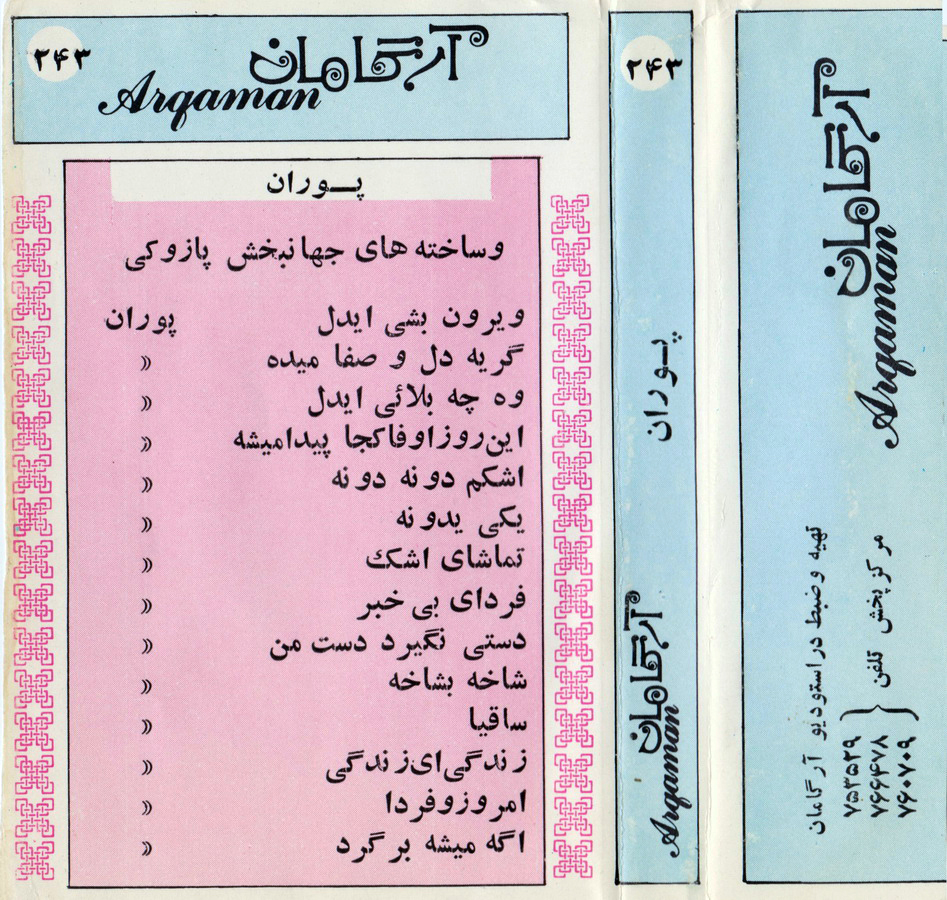 ۲۴۳
آرگامان
Arqaman
پوران
وساخته های جهانبخش پازوکی
ویرون بشی ایدل پوران
گریه دل و صفا میده »
وه چه بلائی ایدل »
این روزا وفا کجا پیدا میشه »
اشکم دونه دونه »
یکی یدونه »
تماشای اشک »
فردای بی خبر »
دستی نگیرد دست من »
شاخه بشاخه »
ساقیا »
زندگی ای زندگی »
امروز و فردا »
اگه میشه برگرد »
۲۴۳
پوران
آرگامان
Arqaman
آرگامان
Arqaman
تهیه و ضبط در استودیو آرگامان
مرکز پخش تلفن
۷۵۳۵۲۹
۷۶۶۴۷۸
۷۶۰۷۰۹